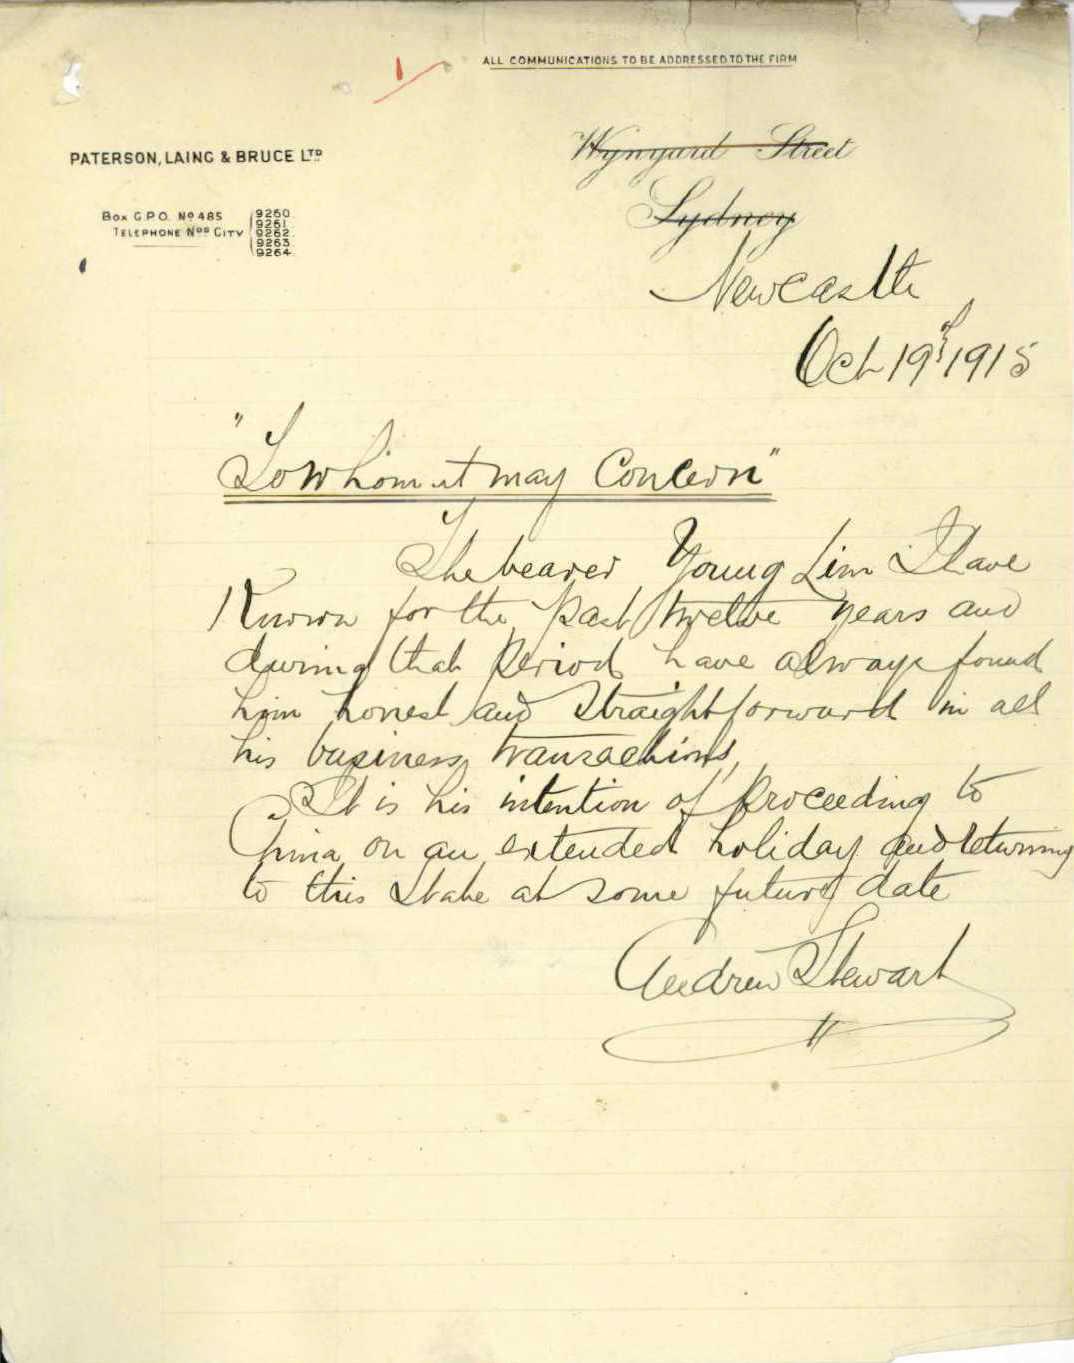 1
ALL COMMUNICATIONS TO BE ADDRESSED TO THE FIRM
PATERSON, LAING & BRUCE LTD
Wynyard Street
Box G.P.O. No 485
TELEPHONE Nos CITY
9260
9261
9262
9263
9264
Sydney
Newcastle
Oct 19th 1915
"To whom it may Concern"
The bearer Young Lim I have
Known for the past twelve years and
during that period have always found
him honest and straightforward in all
his business transactions,
It is his intention of proceeding to
China on an extended holiday and returning
to this State at some future date
Andrew Stewart